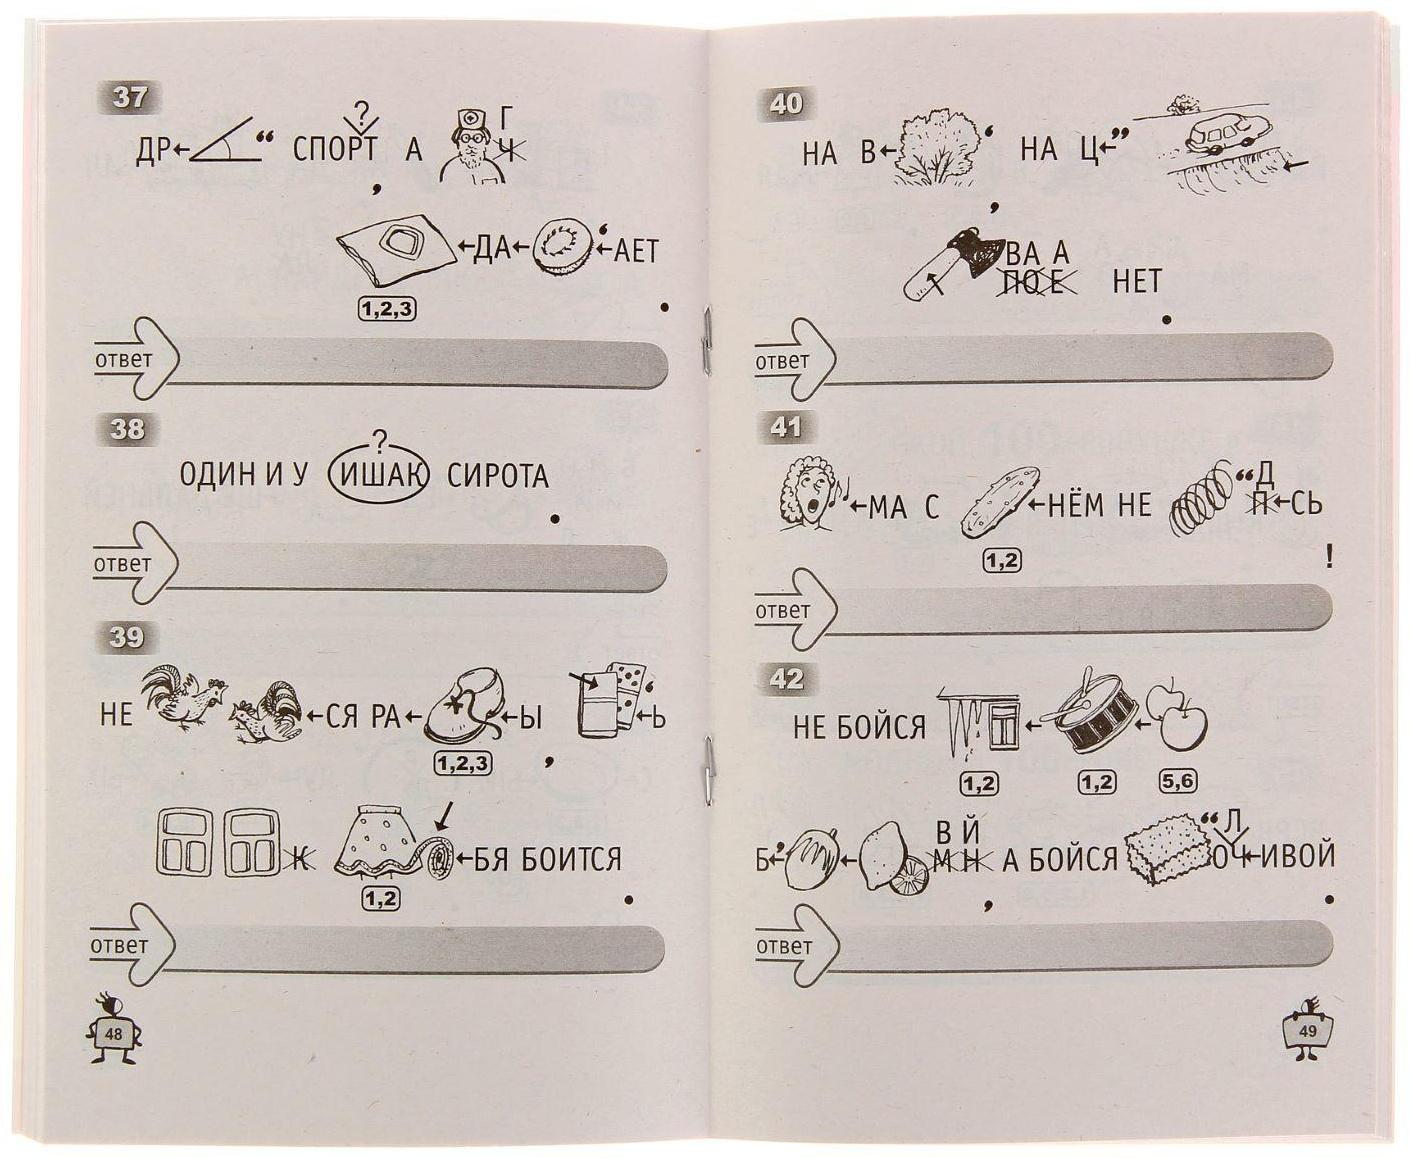 37
?
Г
ДР←“ СПОРТ А Ч
,
←ДА←‘←АЕТ
1,2,3
.
ответ
38
?
ОДИН И У ИШАК СИРОТА
.
ответ
39
НЕ ←СЯ РА← ←Ы ‘←Ь
1,2,3 ,
К ←БЯ БОИТСЯ
1,2 .
ответ
48
40
НА В←‘ НА Ц←”
,
ВА А
ПО Е НЕТ
.
ответ
41
“Д
←МА С ←НЁМ НЕ П←СЬ
1,2 !
ответ
42
НЕ БОЙСЯ ← ←
1,2 1,2 5,6
В Й “Л
Б←‘ ← М Н А БОЙСЯ ОЧ←ИВОЙ
, .
ответ
49